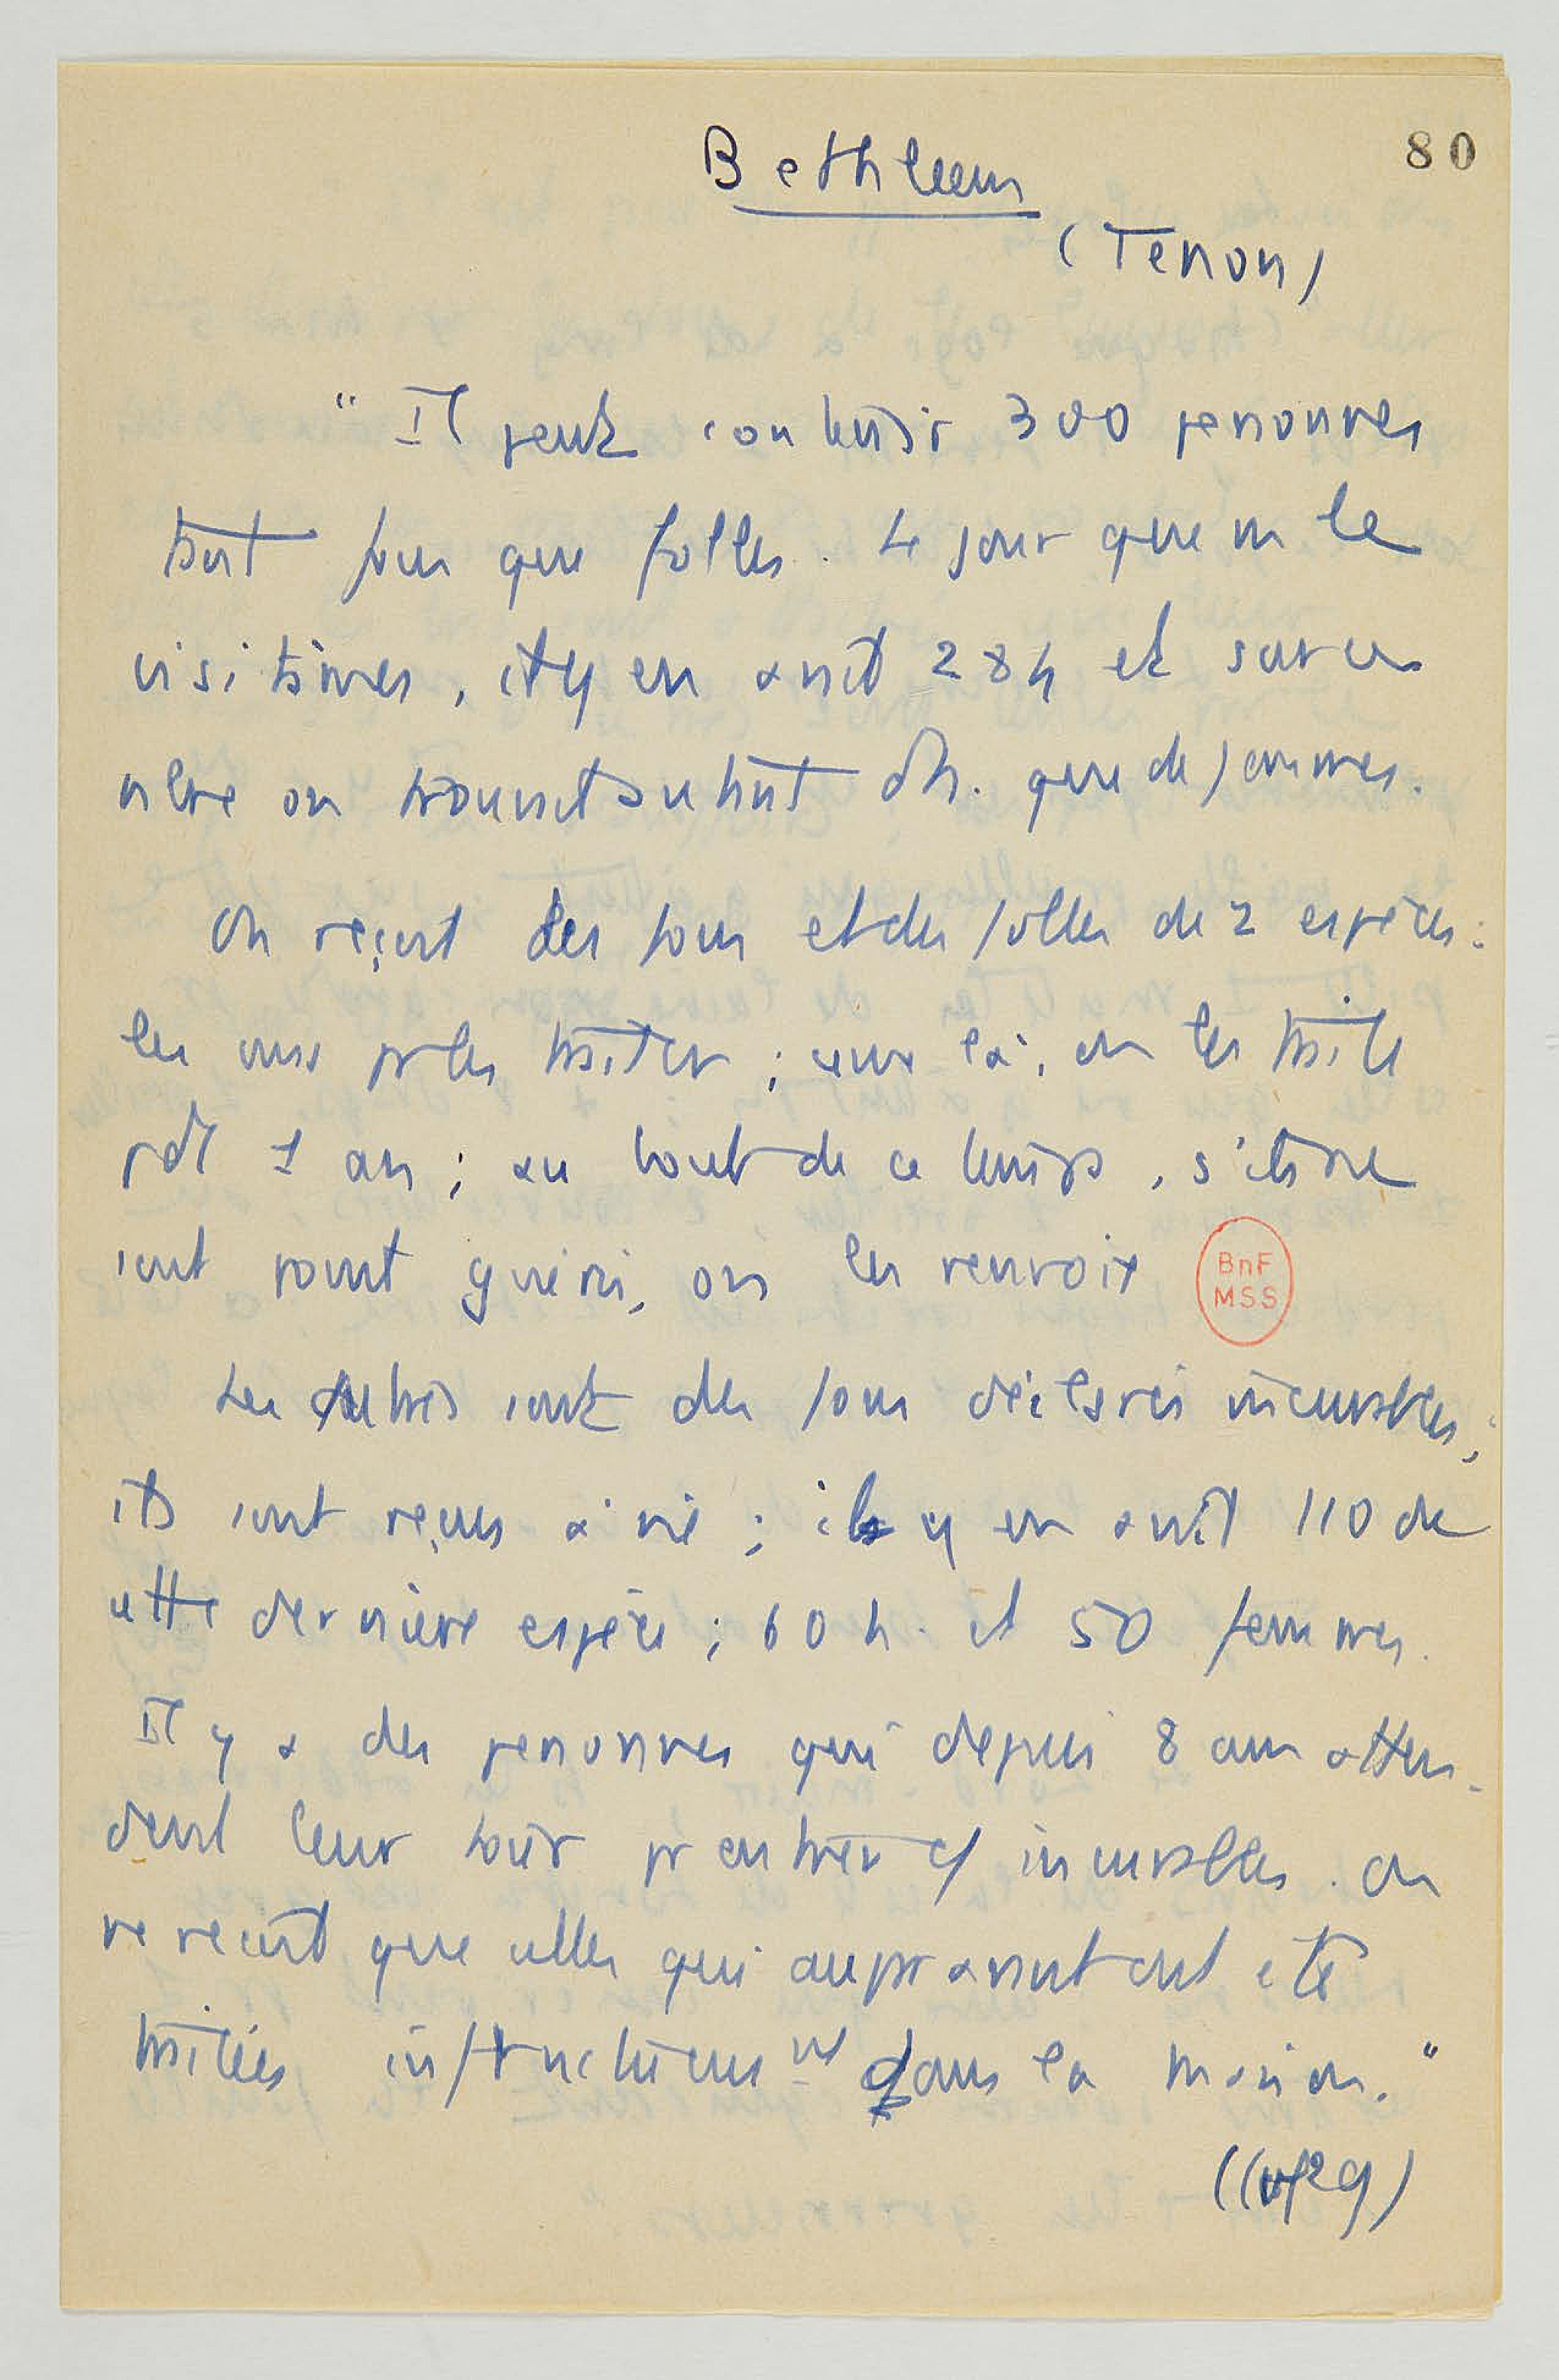 80
Bethleem
(Tenon)
" Il peut contenir 300 personnes
tant fous que folles. Le jour que n. le
visitâmes, il y en avait 284 et sur ce
nbre on trouvait autant d'h. que de femmes.
On reçoit des fous et des folles de 2 espèces :
les uns pr les traiter ; ceux là, on les traite
pdt 1 an ; au bout de ce temps, s'ils ne
sont point guéris, on les renvoie
BnF
MSS
Les autres sont des fous déclarés incurables ;
ils sont reçus à vie ; il y en avait 110 de
cette dernière espèce ; 60 h. et 50 femmes.
Il y a des personnes qui depuis 8 ans atten-
dent leur tour pr entrer c/ incurables. On
ne reçoit que celles qui auparavant ont été
traitées infructueusmt dans la maison."